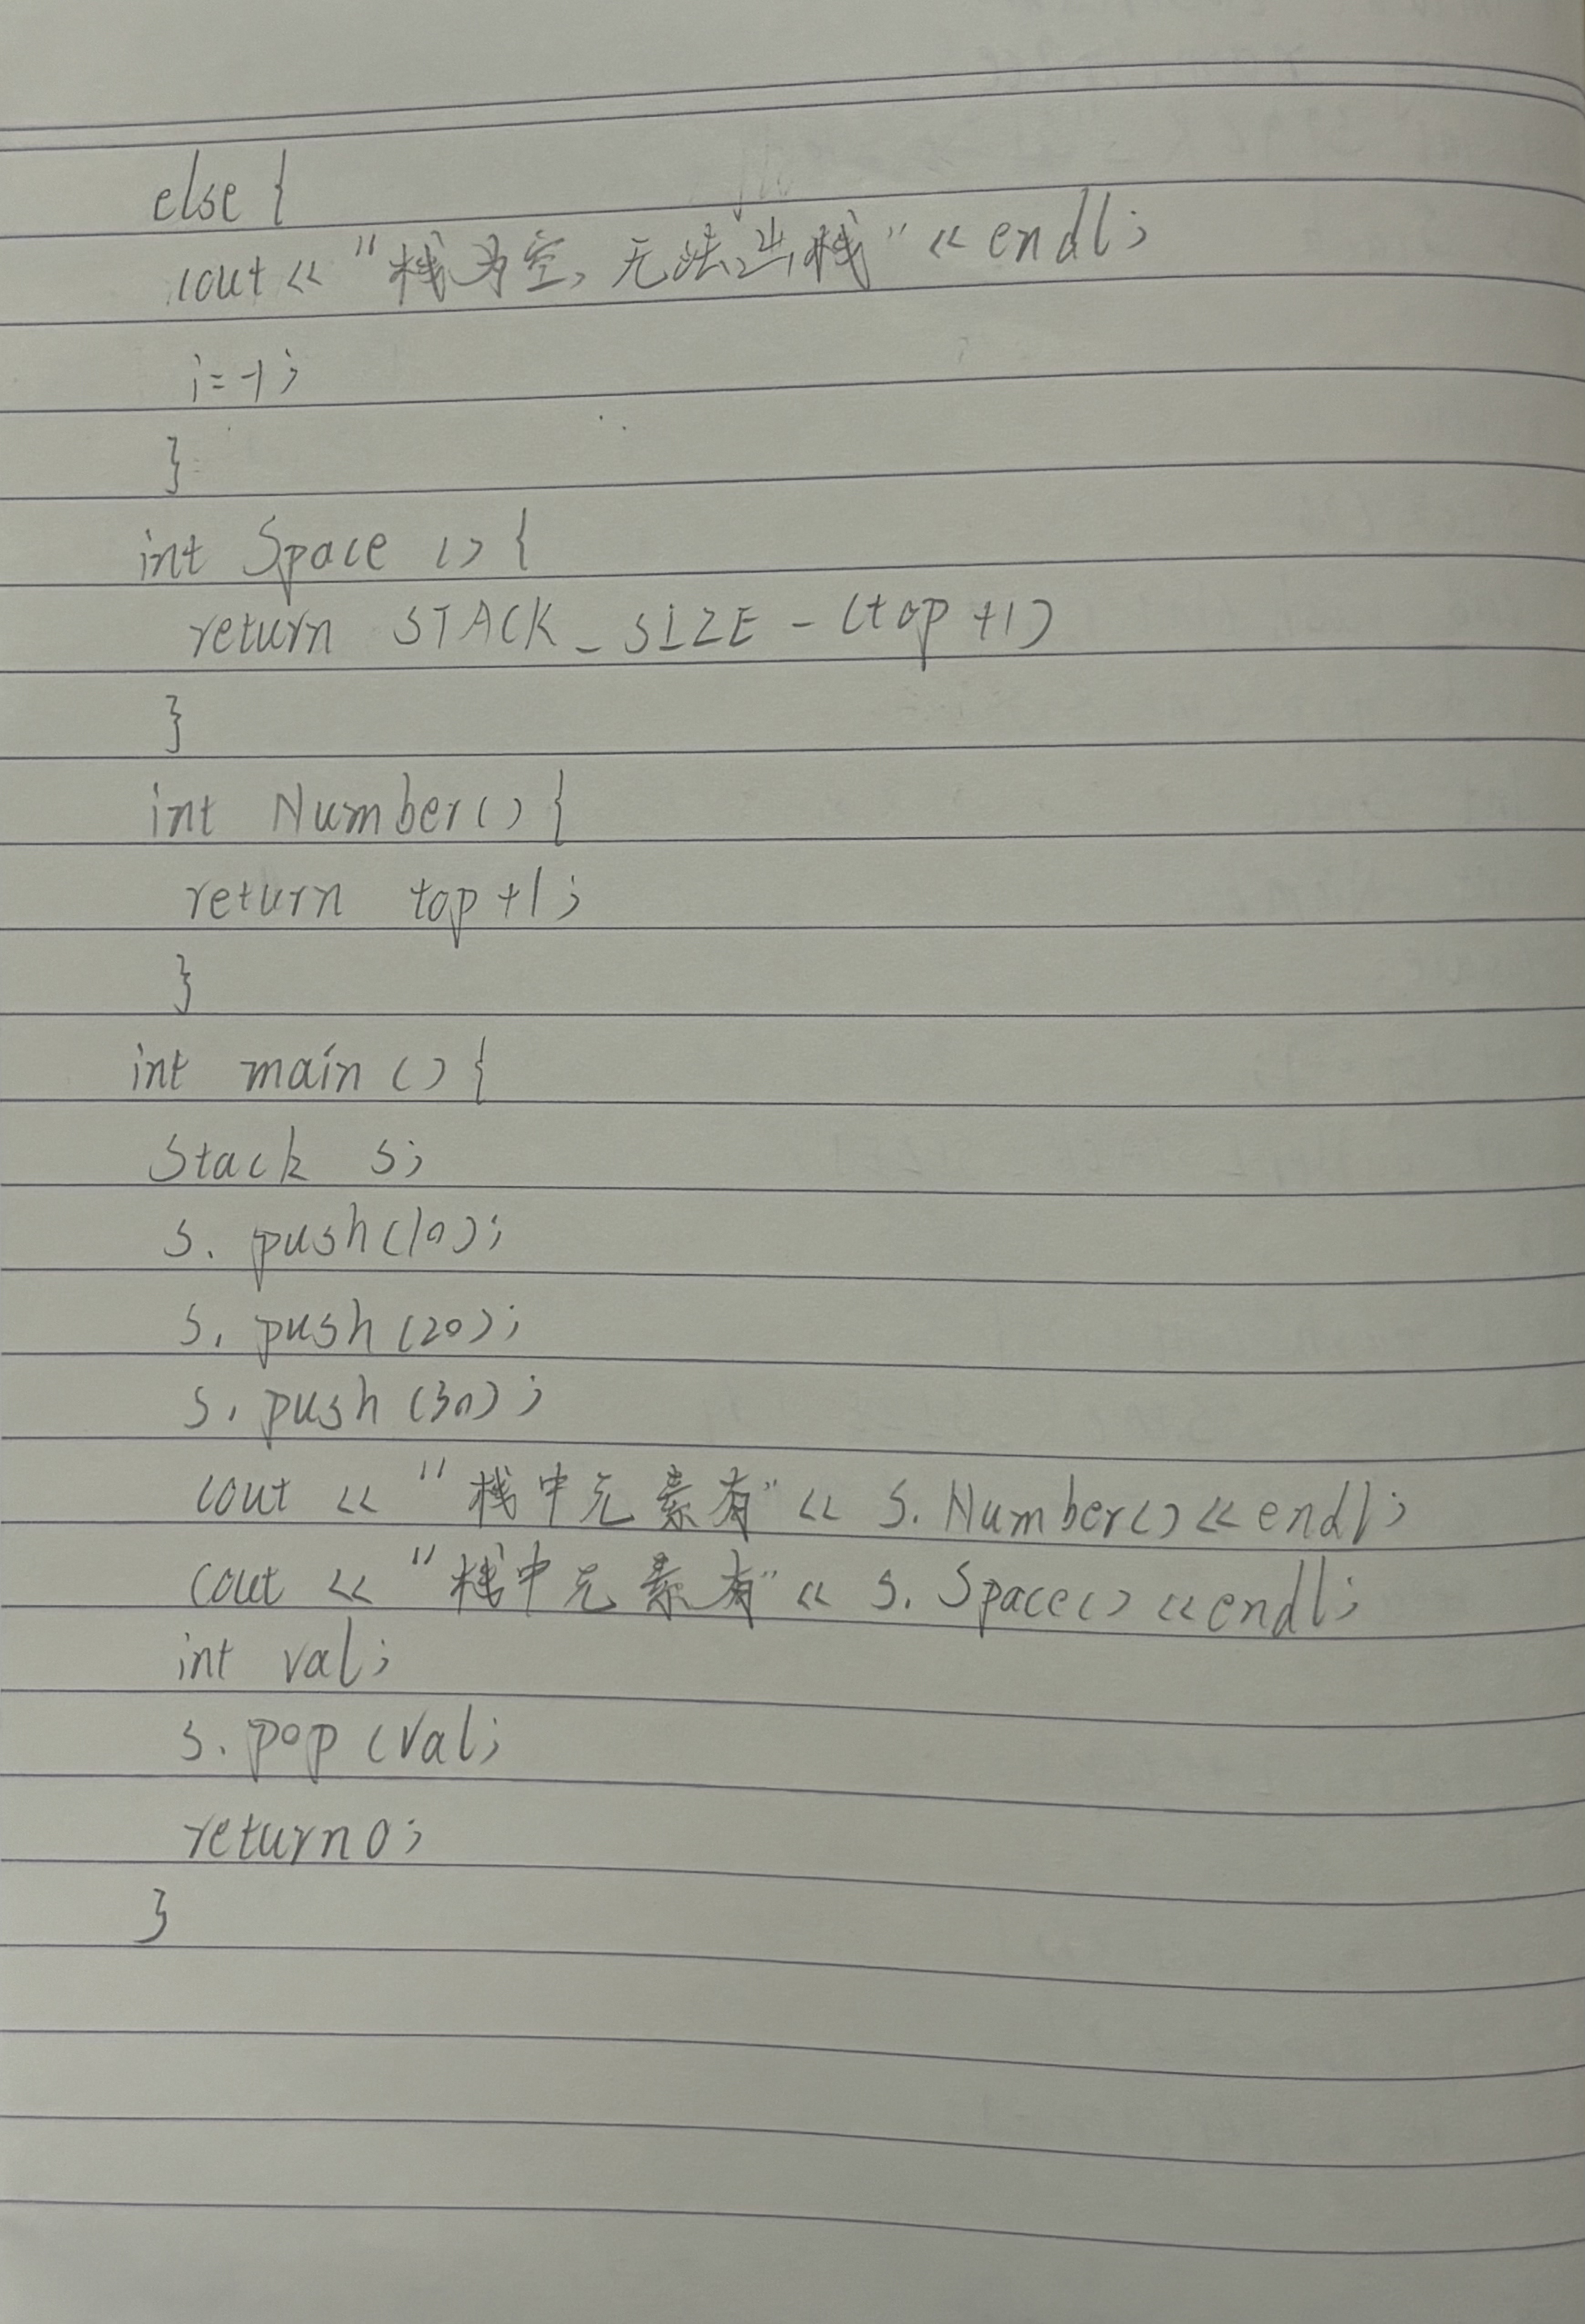 else {
cout << "栈为空,无法出栈" << endl;
i=-1;
}
int Space () {
return STACK_SIZE - (top +1)
}
int Number() {
return top+1;
}
int main () {
Stack s;
s. push(10);
s. push (20);
s. push (30);
cout << "栈中元素有" << s. Number() << endl;
cout << "栈中元素有" << s. Space() << endl;
int val;
s. pop (val;
return 0;
}